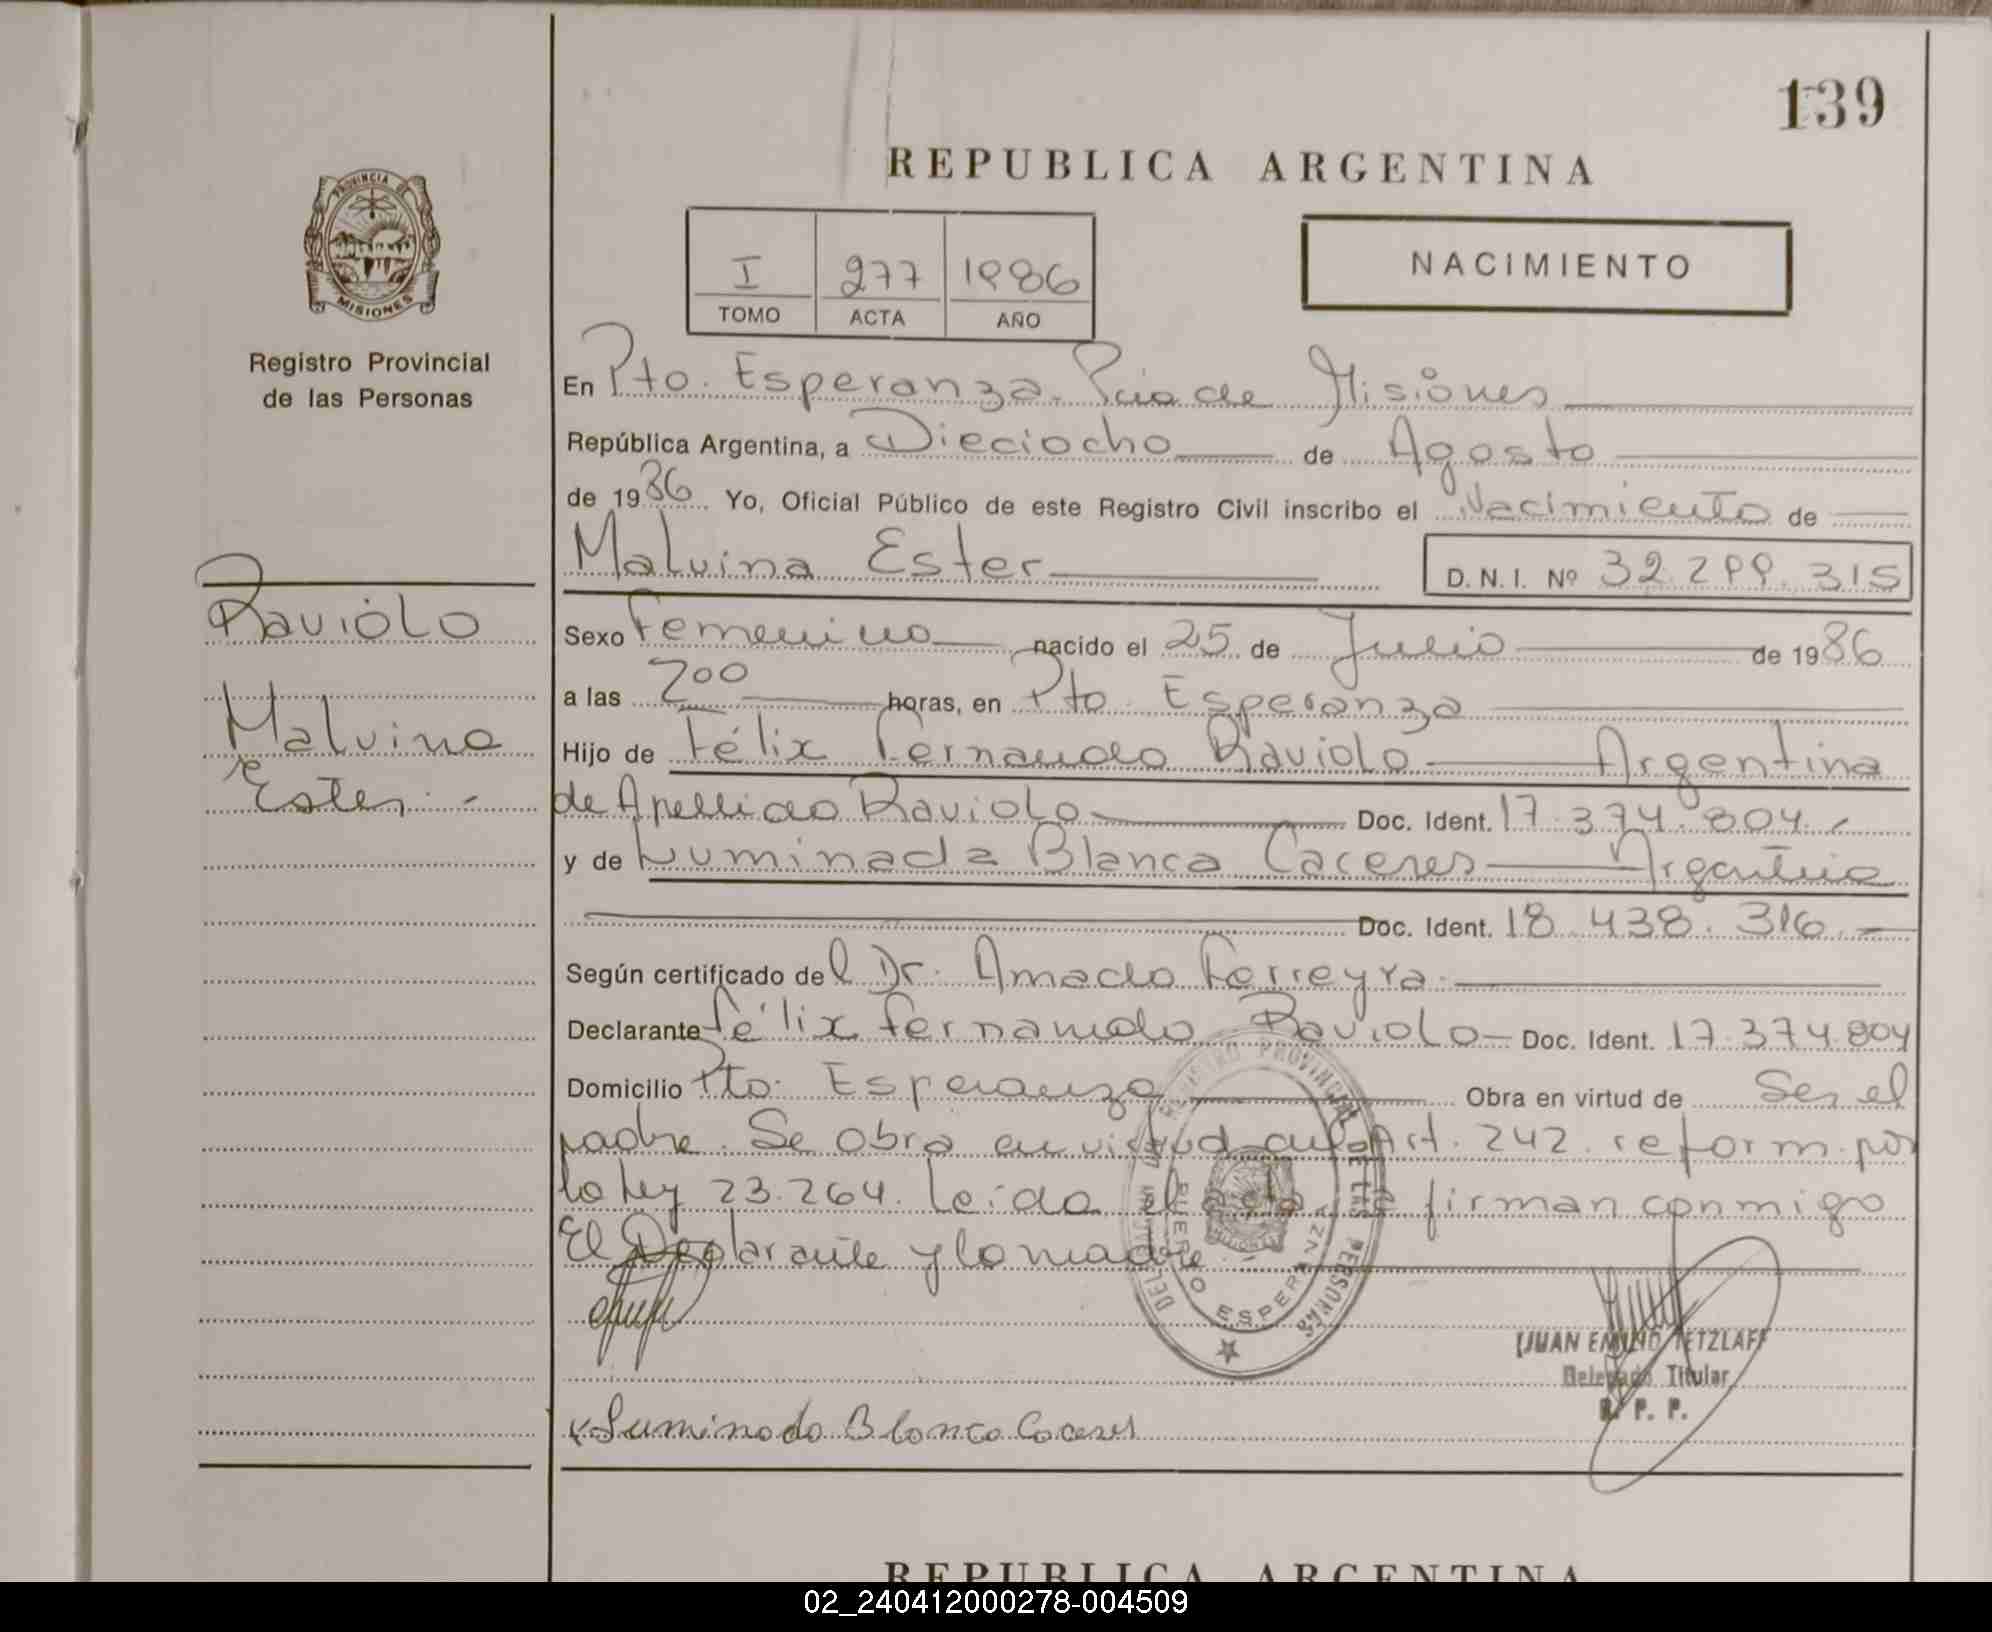 139
REPUBLICA ARGENTINA
PROVINCIA DE
MISIONES
Registro Provincial
de las Personas
I 277 1986
TOMO ACTA AÑO
NACIMIENTO
En Pto. Esperanza Pcia de Misiones
República Argentina, a Dieciocho de Agosto
de 1986 Yo, Oficial Público de este Registro Civil inscribo el Nacimiento de
Malvina Ester
D.N.I. Nº 32.299.315
Raviolo
Malvina
Ester.-
Sexo Femenino nacido el 25 de Julio de 1986
a las 700 horas, en Pto. Esperanza
Hijo de Félix Fernando Raviolo Argentina
de Apellido Raviolo Doc. Ident. 17.374.804.-
y de Luminada Blanca Caceres Argentina
Doc. Ident. 18.438.316.-
Según certificado del Dr. Amado Ferreyra.
Declarante Félix Fernando Raviolo- Doc. Ident. 17.374.804
Domicilio Pto. Esperanza Obra en virtud de Ser el
padre. Se obra en virtud del Art. 242. reform. por
la Ley 23.264. Leida el acta la firman conmigo
El Declarante y la madre.-
REGISTRO PROVINCIAL DE LAS PERSONAS
PUERTO ESPERANZA
JUAN EMILIO TETZLAFF
Delegado Titular
R. P. P.
Luminada Blanca Caceres
REPUBLICA ARGENTINA
02_240412000278-004509